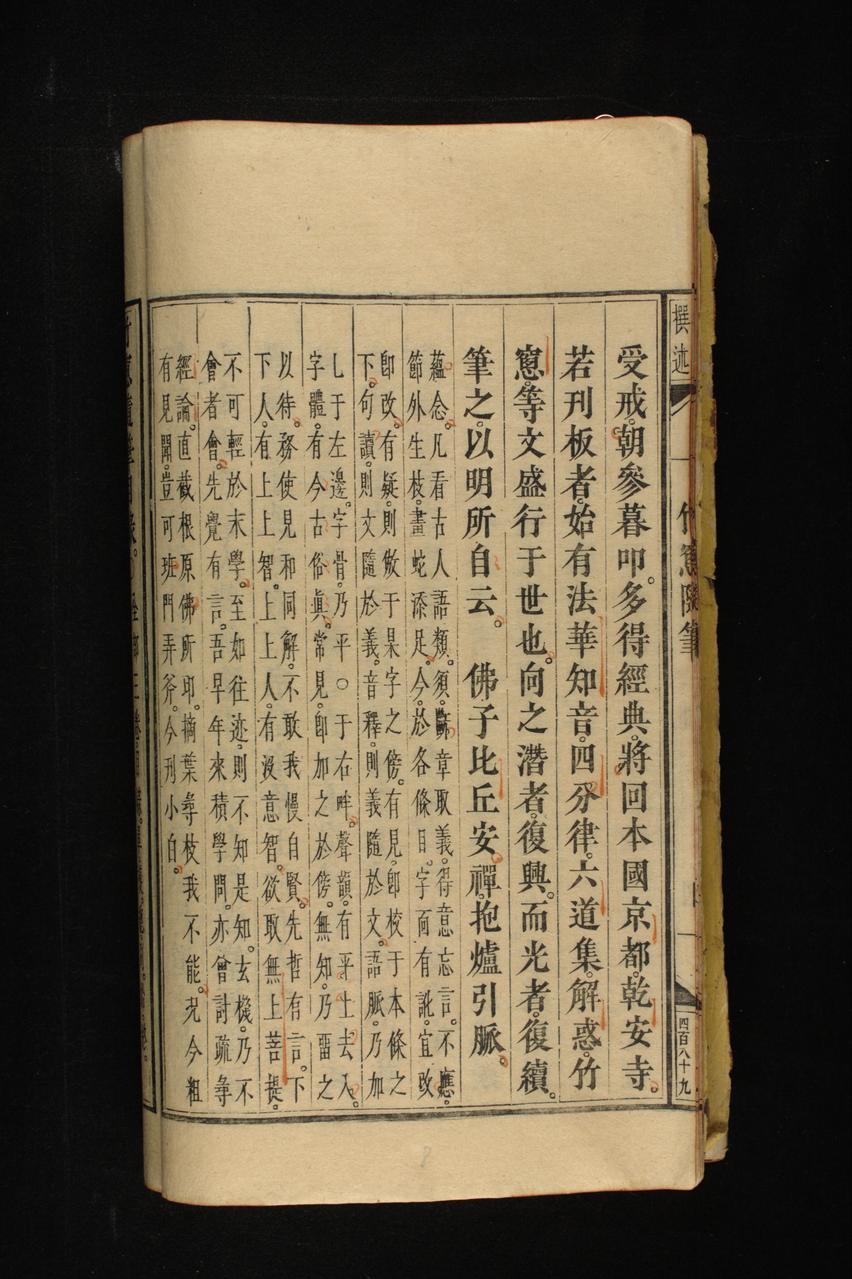 撰述
一 竹窻隨筆
四百八十九
受戒。朝參暮叩。多得經典。將回本國京都。乾安寺。
若刊板者。始有法華知音。四分律。六道集。解惑。竹
窻。等文盛行于世也。向之潛者。復興。而光者。復續。
筆之。以明所自云。 佛子比丘安禪。抱爐引脈。
蘊念。凡看古人語類。須斷章取義。得意忘言。不應
節外生枝。畫蛇添足。今於各條目。字面有訛。宜改
卽改。有疑。則倣于杲字之傍。有見。卽校于本條之
下。句讀。則文隨於義。音釋。則義隨於文。語脈。乃加
乚于左邊。字骨。乃平〇于右畔。聲韻。有平上去入。
字體。有今古俗眞。常見。卽加之於傍。無知。乃畱之
以待。務使見和同解。不敢我慢自賢。先哲有言。下
下人。有上上智。上上人。有沒意智。欲取無上菩提。
不可輕於末學。至如往迹。則不知是知。玄機。乃不
會者會。先覺有言。吾早年來積學問。亦曾討疏尋
經論。直截根原佛所印。摘葉尋枝我不能。況今粗
有見聞。豈可班門弄斧。今刊小白。